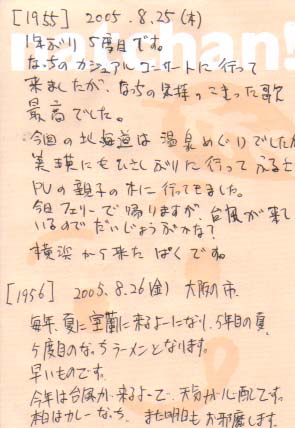 [1955] 2005.8.25(木)
1年ぶり5度目です。
なっちのカジュアルコンサートに行って
来ましたが、なっちの気持のこもった歌
最高でした。
今回の北海道は温泉めぐりでしたが
美瑛にもひさしぶりに行って ふるさと
PVの親子の木に行ってきました。
今日フェリーで帰りますが、台風が来て
いるのでだいじょうぶかな?
横浜から来た ぱくです。
[1956] 2005.8.26(金) 大阪の市.
毎年、夏に室蘭に来るよーになり、5年目の夏
5度目のなっちラーメンとなります。
早いものです。
今年は台風が来るよーで、天気が心配です。
本日はカレーなっち、また明日もお邪魔します。